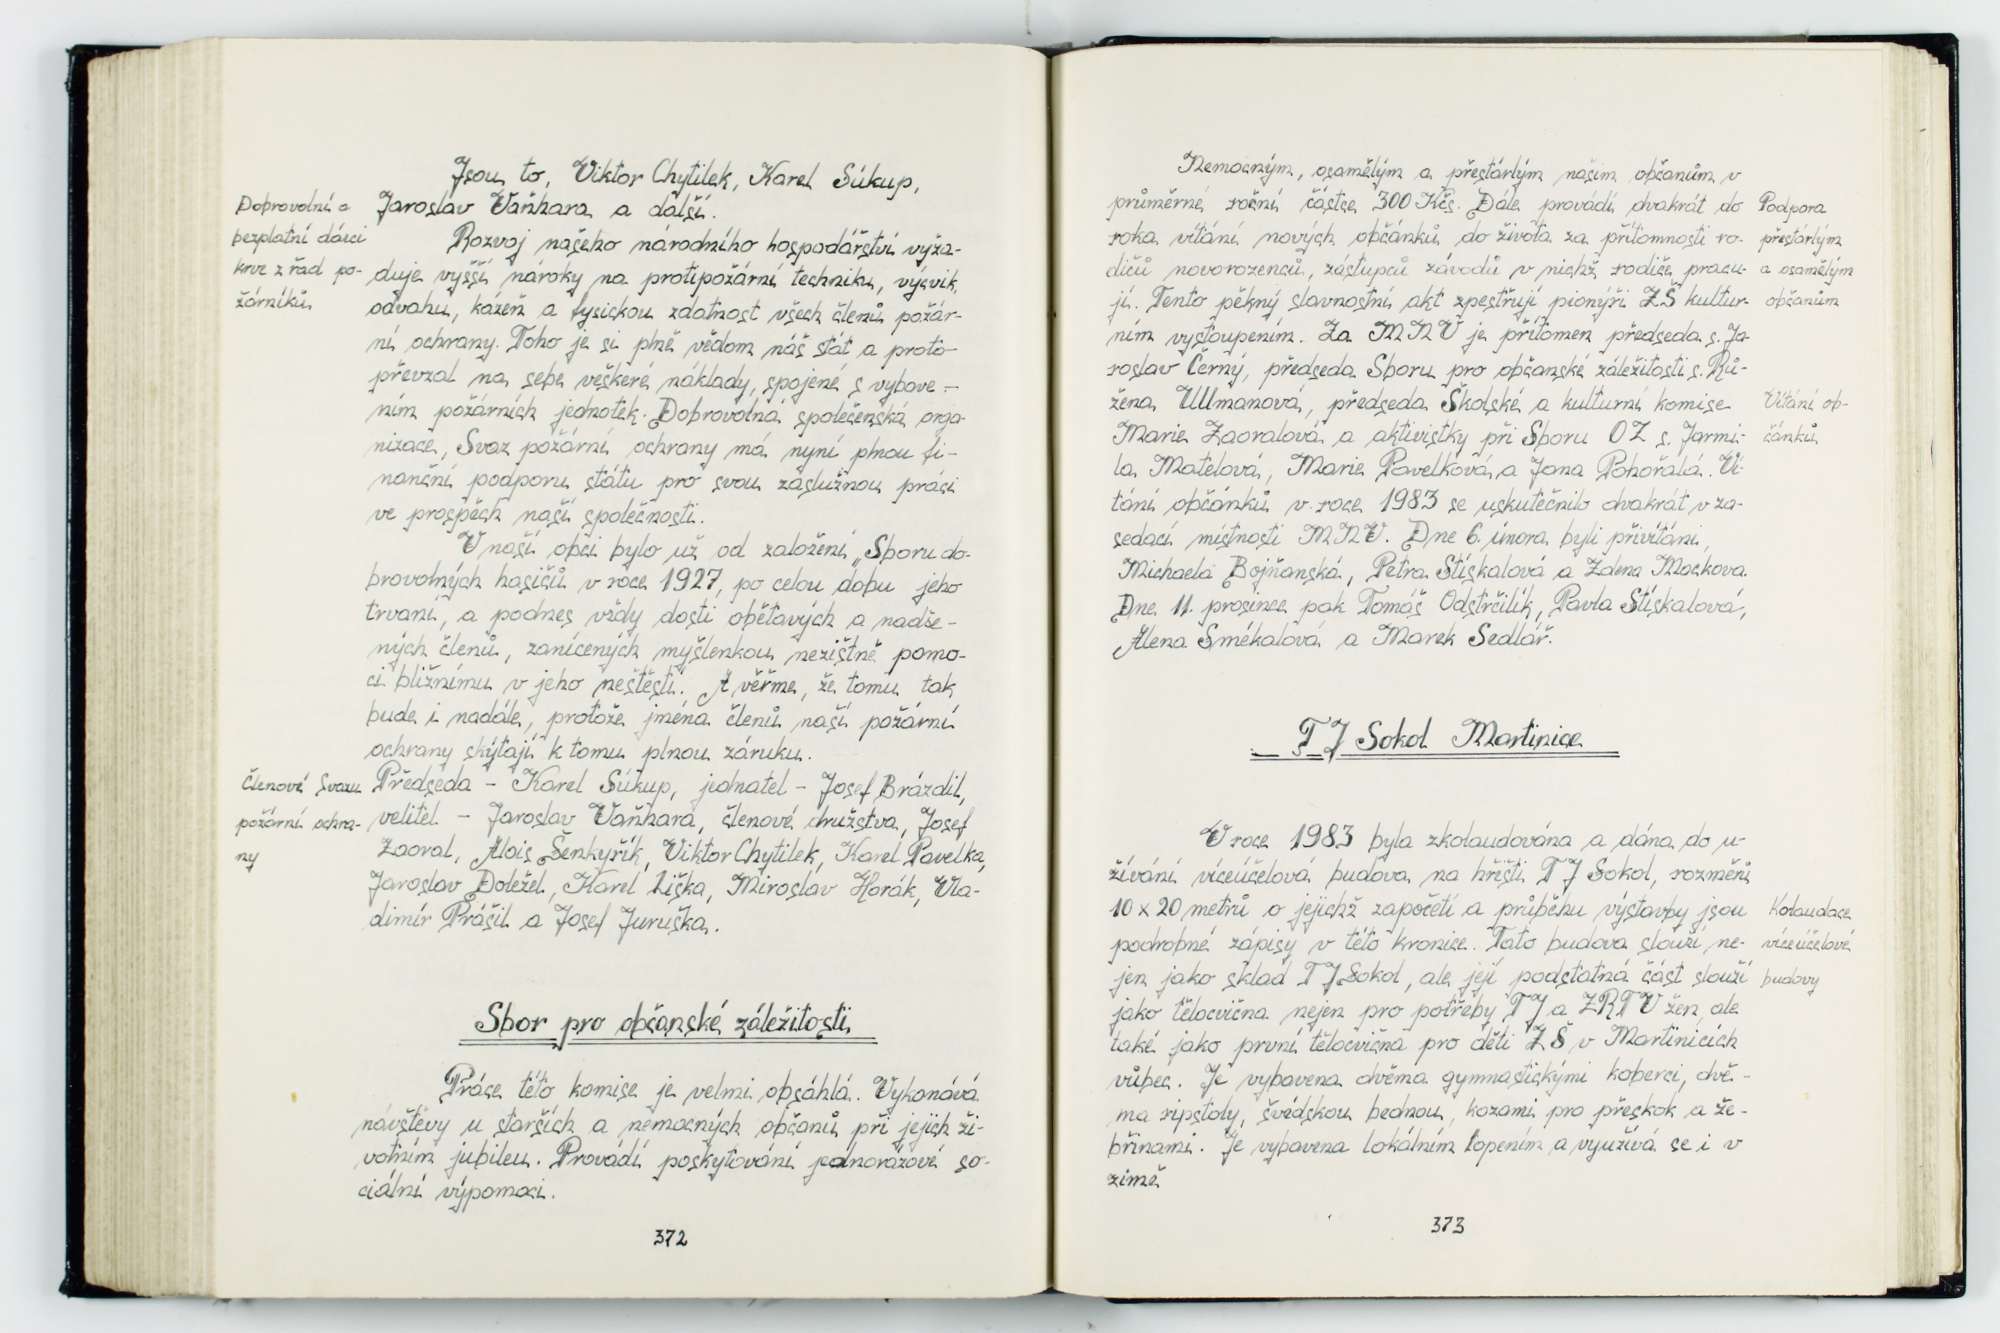 Jsou to, Viktor Chytilek, Karel Súkup,
Dobrovolní a
bezplatní dárci
krve z řad po-
žárníků
Jaroslav Vaňhara a další.
Rozvoj našeho národního hospodářství vyža-
duje vyšší nároky na protipožární techniku, výcvik,
odvahu, kázeň a fysickou zdatnost všech členů požár-
ní ochrany. Toho je si plně vědom náš stát a proto
převzal na sebe veškeré náklady, spojené s vybave-
ním požárních jednotek. Dobrovolná společenská orga-
nizace, Svaz požární ochrany má nyní plnou fi-
nanční podporu státu pro svou záslužnou práci
ve prospěch naší společnosti.
V naší obci bylo už od založení „Sboru do-
brovolných hasičů v roce 1927, po celou dobu jeho
trvaní, a podnes vždy dosti obětavých a nadše-
ných členů, zanícených myšlenkou nezištně pomo-
ci bližnímu v jeho neštěstí. A věřme, že tomu tak
bude i nadále, protože jména členů naší požární
ochrany skýtají k tomu plnou záruku.
Členové Svazu
požární ochra-
ny
Předseda - Karel Súkup, jednatel - Josef Brázdil,
velitel - Jaroslav Vaňhara, členové družstva, Josef
Zaoral, Alois Šenkyřík, Viktor Chytilek, Karel Pavelka,
Jaroslav Doležel, Karel Liška, Miroslav Horák, Vla-
dimír Prášil a Josef Juruška.
Sbor pro občanské záležitosti
Práce této komise je velmi obsáhlá. Vykonává
návštěvy u starších a nemocných občanů při jejich ži-
votním jubileu. Provádí poskytování jednorázové so-
ciální výpomoci.
372
Nemocným, osamělým a přestárlým našim občanům v
průměrné roční částce 300 Kčs. Dále provádí dvakrát do
roka vítání nových občánků do života za přítomnosti ro-
dičů novorozenců, zástupců závodů v nichž rodiče pracu-
jí. Tento pěkný slavnostní akt zpestřují pionýři ZŠ kultur-
ním vystoupením. Za MNV je přítomen předseda s. Ja-
roslav Černý, předseda Sboru pro občanské záležitosti s. Rů-
žena Ullmanová, předseda Školské a kulturní komise
Marie Zaoralová a aktivistky při Sboru OZ s. Jarmi-
la Matelová, Marie Pavelková a Jana Pohořalá. Ví-
tání občánků v roce 1983 se uskutečnilo dvakrát v za-
sedací místnosti MNV. Dne 6. února byli přivítáni,
Michaela Bojňanská, Petra Stískalová a Zdena Macková.
Dne 11. prosince pak Tomáš Odstrčilík, Pavla Stískalová,
Alena Smékalová a Marek Sedlář.
Podpora
přestárlým
a osamělým
občanům
Vítání ob-
čánků
TJ Sokol Martinice
V roce 1983 byla zkolaudována a dána do u-
žívání víceúčelová budova na hřišti TJ Sokol, rozměrů
10 x 20 metrů o jejichž započetí a průběhu výstavby jsou
podrobné zápisy v této kronice. Tato budova slouží ne-
jen jako sklad TJ Sokol, ale její podstatná část slouží
jako tělocvična nejen pro potřeby TJ a ZRTV žen, ale
také jako první tělocvična pro děti ZŠ v Martinicích
vůbec. Je vybavena dvěma gymnastickými koberci, dvě-
ma ripstoly, švédskou bednou, kozami pro přeskok a že-
břinami. Je vybavena lokálním topením a využívá se i v
zimě
Kolaudace
víceúčelové
budovy
373